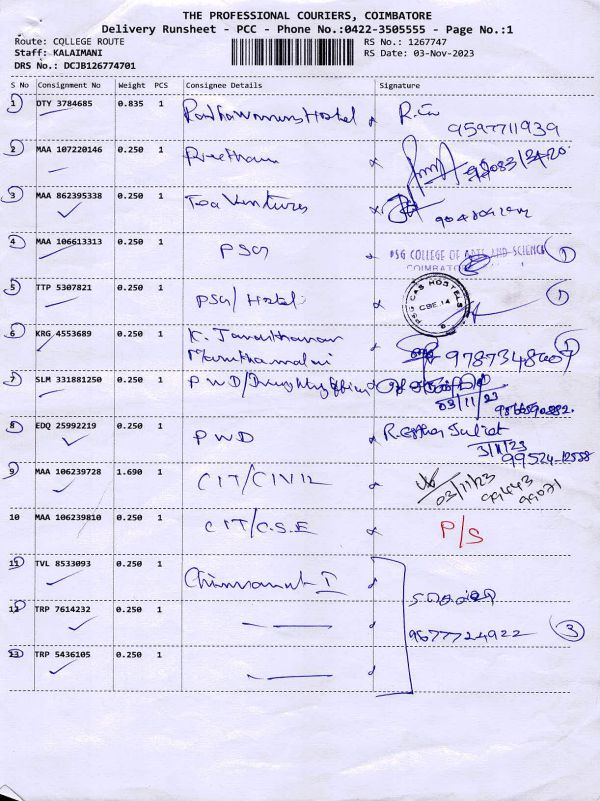 THE PROFESSIONAL COURIERS, COIMBATORE
Delivery Runsheet - PCC - Phone No.:0422-3505555 - Page No.:1
Route: COLLEGE ROUTE RS No.: 1267747
Staff: KALAIMANI RS Date: 03-Nov-2023
DRS No.: DCJB126774701
S No Consignment No Weight PCS Consignee Details Signature
1 DTY 3784685 0.835 1 Hostel R.
9597711939
2 MAA 107220146 0.250 1 Preetham
3 MAA 862395338 0.250 1 Tea Ventures
4 MAA 106613313 0.250 1 PSG PSG COLLEGE OF ARTS AND SCIENCE 1
COIMBATO
5 TTP 5307821 0.250 1 PSG/Hostel PSG CAS HOSTELS CBE.14 1
6 KRG 4553689 0.250 1 K. Janarthanan
Maruthamalai 1
7 SLM 331881250 0.250 1 PWD/
03/11/23
8 EDQ 25992219 0.250 1 PWD R. Esther Juliet
3/11/23
99524-12558
9 MAA 106239728 1.690 1 CIT/CIVIL
03/11/23
99443
99071
10 MAA 106239810 0.250 1 CIT/C.S.E P/S
11 TVL 8533093 0.250 1
12 TRP 7614232 0.250 1
9677724922 3
13 TRP 5436105 0.250 1